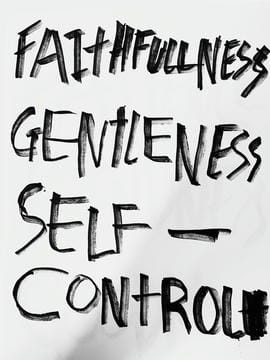 FAITHFULLNESS
GENTLENESS
SELF-
CONTROL